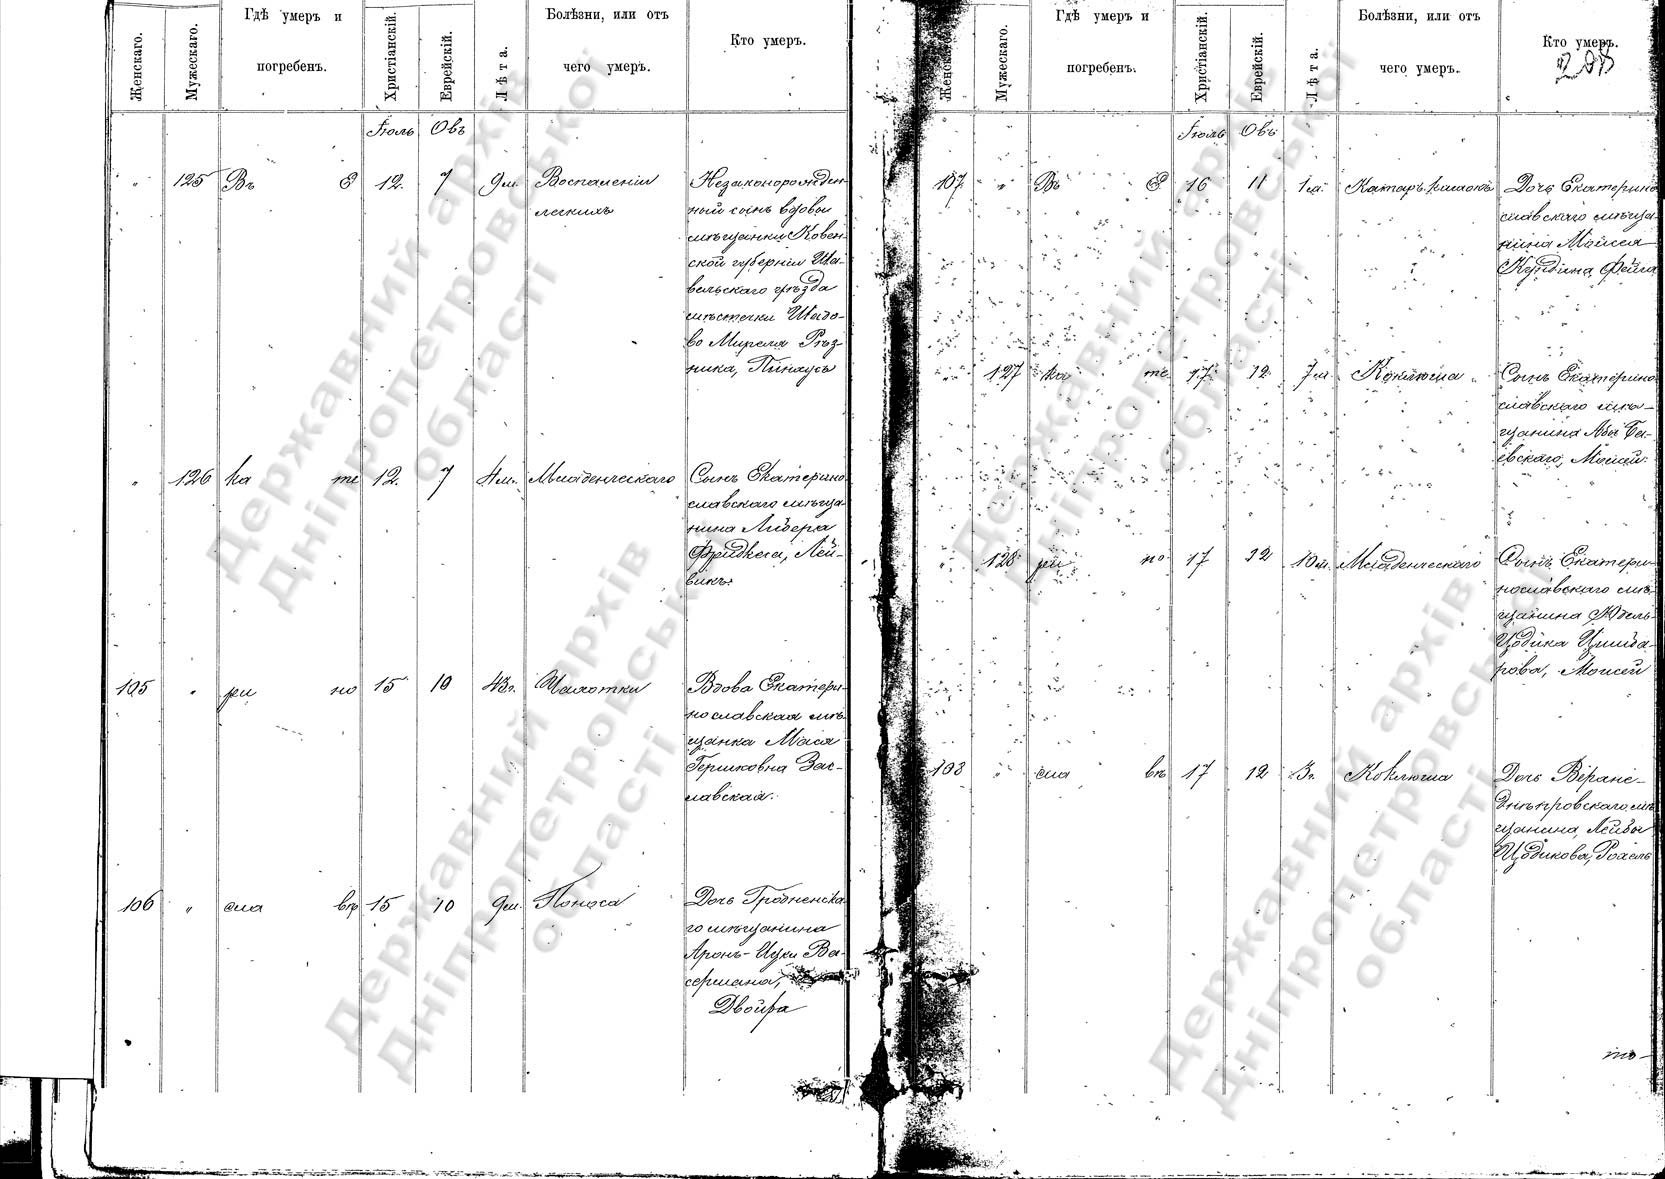 Женскаго.
Мужескаго.
Гдѣ умеръ и
погребенъ.
Христіанскій.
Еврейскій.
Лѣта.
Болѣзни, или отъ
чего умеръ.
Кто умеръ.
Іюль Овъ
„ 125 Въ Е 12. 7 9 м. Воспаленіи
легкихъ
Незаконорожден-
ный сынъ вдовы
мѣщанки Ковен-
ской губерніи Ша-
вельскаго уѣзда
мѣстечки Шадо-
во Мирела Рѣз-
ника, Пинхусъ
„ 126 ка те 12. 7 4 м. Младенческаго
Сынъ Екатерино
славскаго мѣща-
нина Лидера
Фридкеса, Лей-
викъ.
105 „ ри но 15 10 43 г. Чахотки
Вдова Екатери-
нославская мѣ-
щанка Мася
Гершковна Зас-
лавская.
106 „ сла въ 15 10 9 м. Поноса
Дочь Гродненска-
го мѣщанина
Аронъ-Ицки Ва-
сермана,
Двойра
Женскаго.
Мужескаго.
Гдѣ умеръ и
погребенъ.
Христіанскій.
Еврейскій.
Лѣта.
Болѣзни, или отъ
чего умеръ.
Кто умеръ.
Іюль Овъ
107 „ Въ Е 16 11 1 м. Катаръ кишокъ
Дочь Екатерино
славскаго мѣща-
нина Мойсея
Фейга
„ 127 ка те 17 12 7 м. Коклюша
Сынъ Екатерино
славскаго мѣ-
щанина Абы Га-
евскаго,
„ 128 ри но 17 12 10 м. Младенческаго
Сынъ Екатери-
нославскаго мѣ-
щанина Юдель-
Цодика
рова, Моисей
108 „ сла въ 17 12 3 г. Коклюша
Дочь Верхне-
днѣпровскаго мѣ
щанина Лейбы
Цодикова, Рохель
Державний архів
Дніпропетровської
області
Державний архів
Дніпропетровської
області
Державний архів
Дніпропетровської
області
Державний архів
Дніпропетровської
області